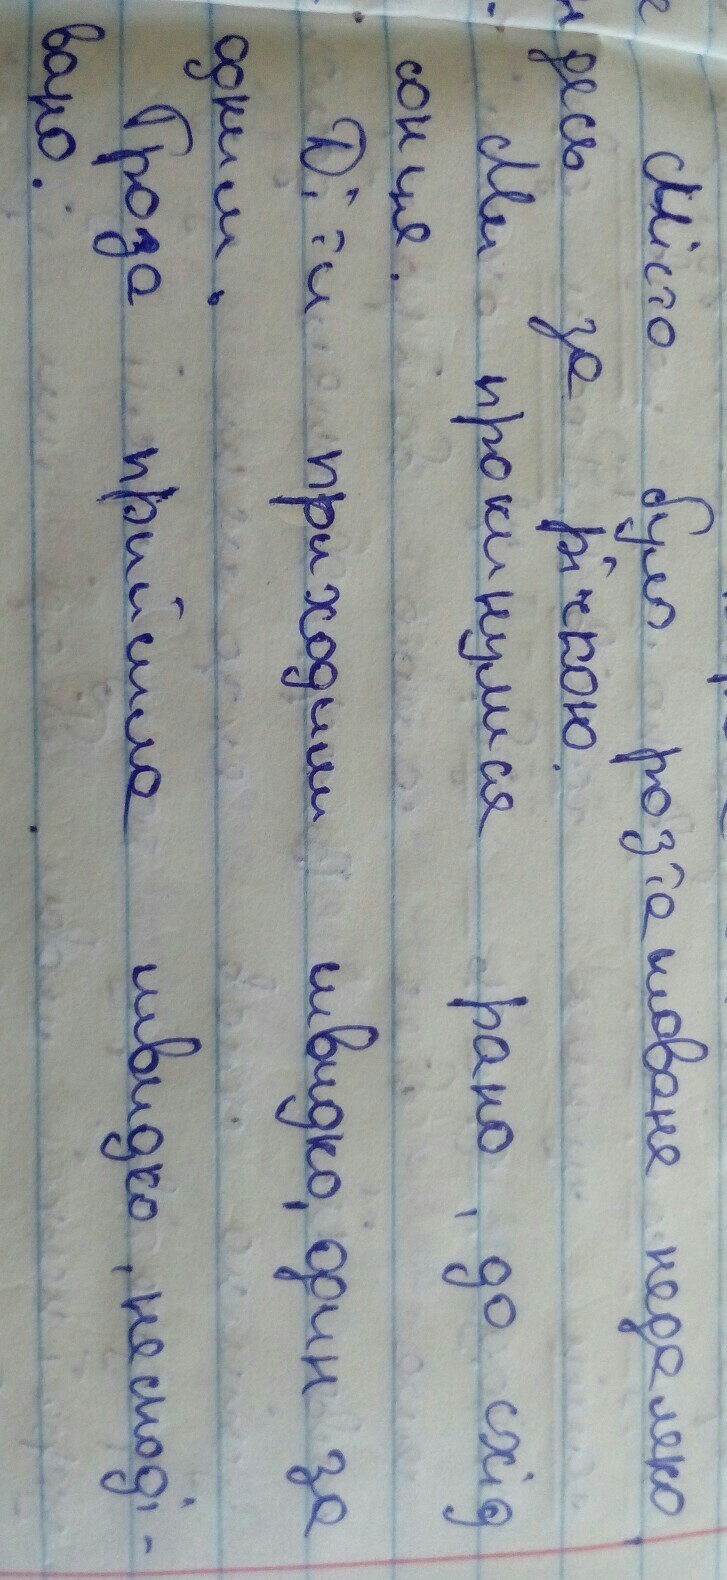 Місто було розташоване недалеко,
десь за річкою.
Ми прокинулися рано, до схід
сонця.
Діти приходили швидко, один за
одним.
Гроза прийшла швидко, несподі-
вано.